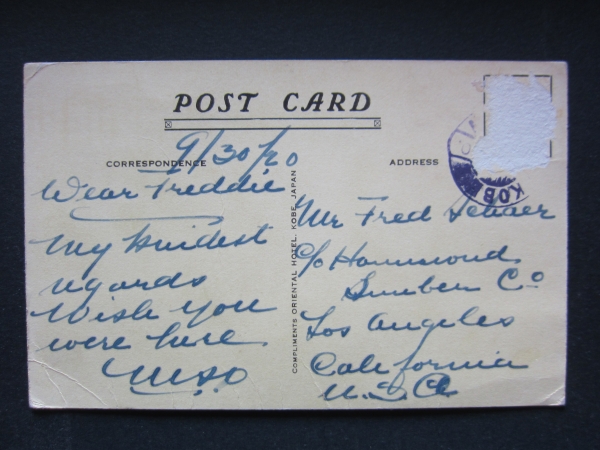 POST CARD
CORRESPONDENCE
9/30/20
Dear Freddie
My kindest
regards
Wish you
were here
ADDRESS
Mr Fred
c/o Hammond
Lumber Co
Los Angeles
California
U.S.A
COMPLIMENTS ORIENTAL HOTEL, KOBE, JAPAN
KOBE